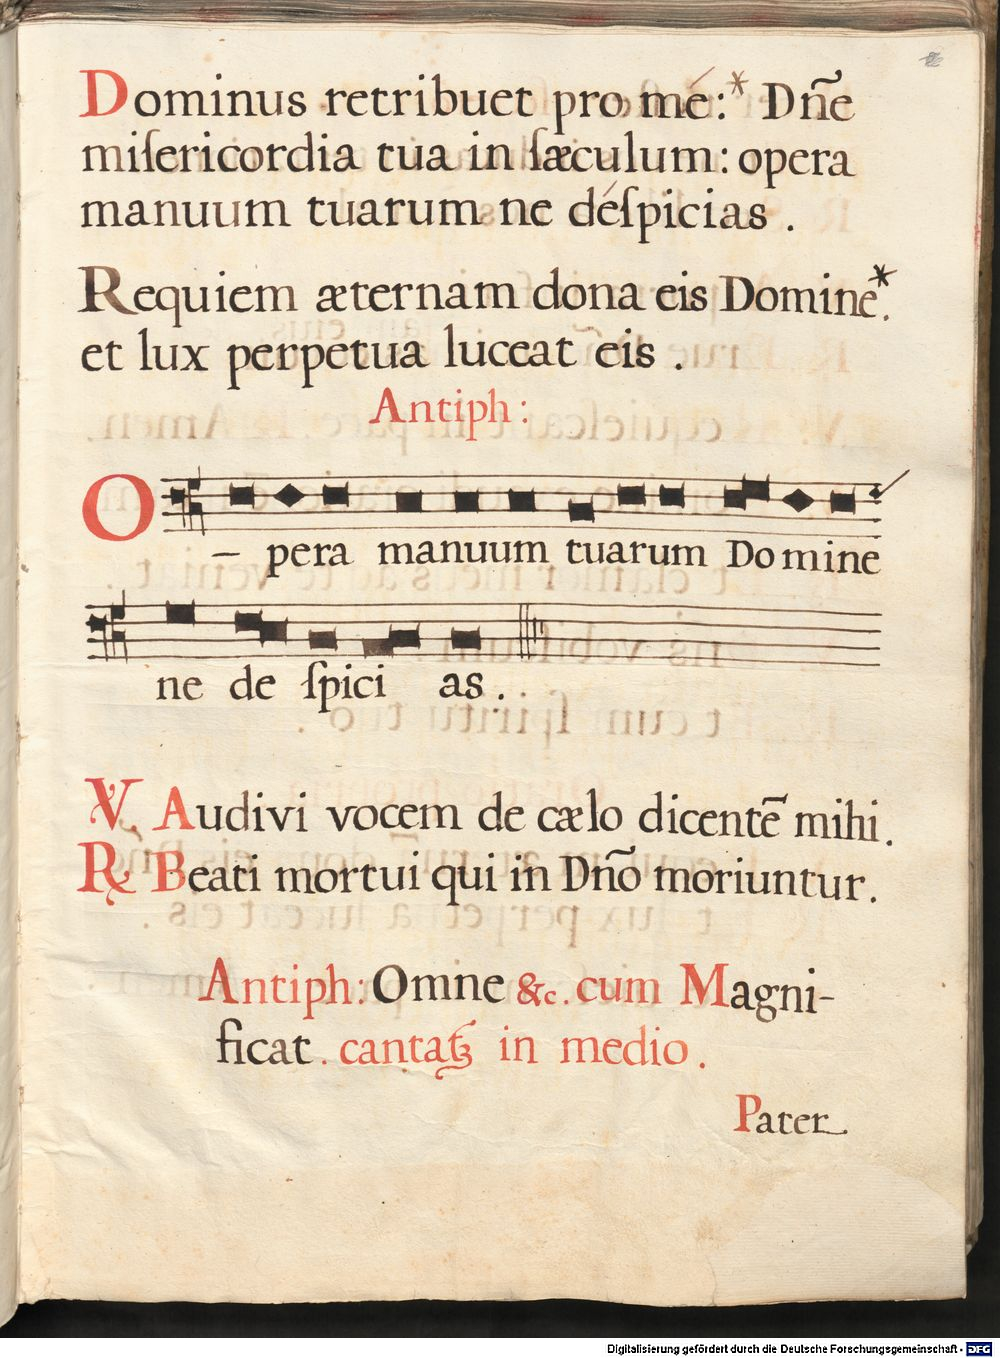 Dominus retribuet pro mé:* Dn̄e
miſericordia tua in ſæculum: opera
manuum tuarum ne déſpicias .
Requiem æternam dona eis Domine*.
et lux perpetua luceat eis .
Antiph:
O
– pera manuum tuarum Domine
ne de ſpici as .
℣. Audivi vocem de cælo dicentē mihi.
℟ Beati mortui qui in Dn̄o moriuntur.
Antiph: Omne &c. cum Magni-
ficat . cantatꝫ in medio .
Pater
Digitalisierung gefördert durch die Deutsche Forschungsgemeinschaft - DFG